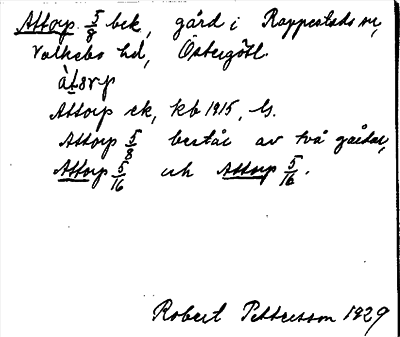 Attorp 5/8 bek, gård i Rappestads sn,
Valkebo hd, Östergötl.
àtårp
Attorp ek, kb 1915, ls.
Attorp 5/8 består av två gårdar,
Attorp 5/16 och Attorp 5/16.
Robert Pettersson 1929